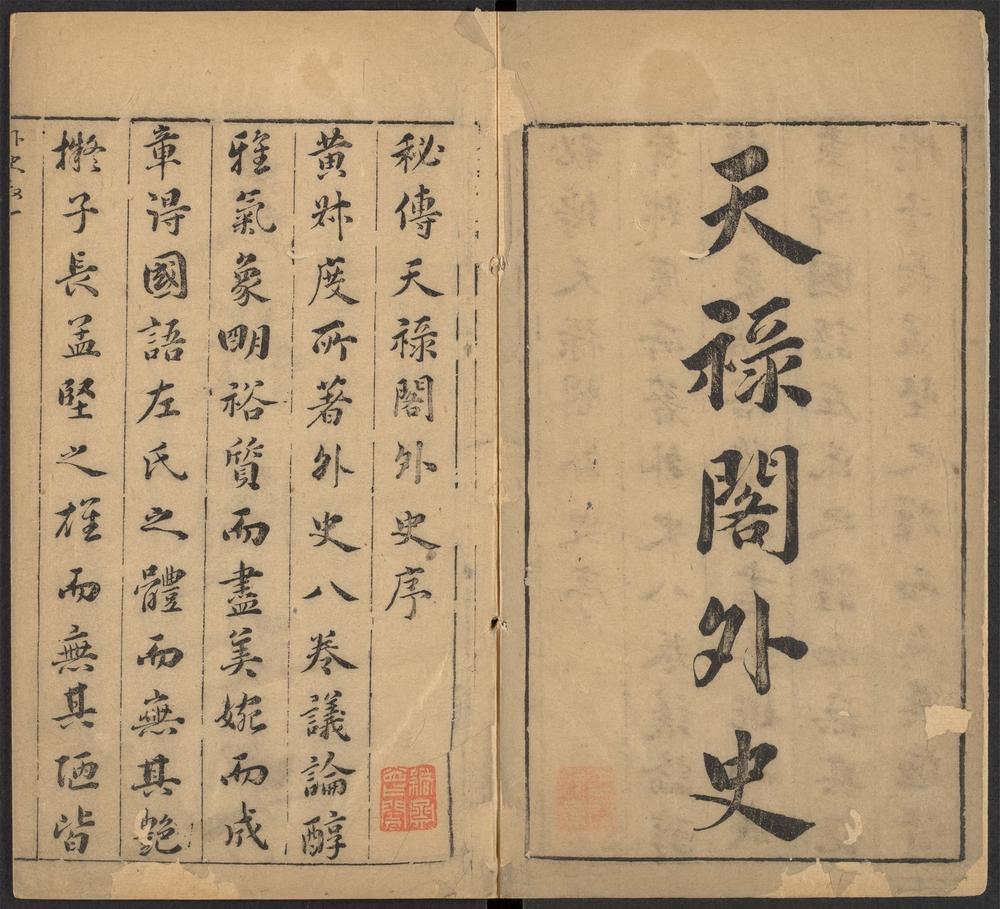 天祿閣外史
秘傳天祿閣外史序
黃叔度所著外史八卷議論醇
雅氣象明裕質而盡美婉而成
章得國語左氏之體而無其艷
擬子長孟堅之雄而無其陋皆